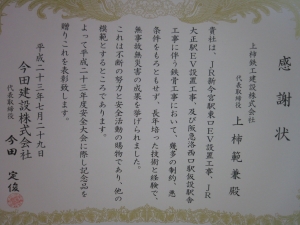 感謝状
上柿鉄工建設株式会社
代表取締役 上柿範兼殿
貴社は、JR新今宮駅東口EV設置工事、JR
大正駅EV設置工事、及び阪急洛西口駅仮設駅舎
工事に伴う鉄骨工事において、幾多の制約、悪
条件をもろともせず、長年培った技術と経験で、
無事故無災害の成果を挙げられました。
これは不断の努力と安全活動の賜物であり、他の
模範とするところであります。
よって平成二十三年度安全大会に際し記念品を
贈りこれを表彰致します。
平成二十三年七月二十九日
今田建設株式会社
代表取締役 今田 定俊